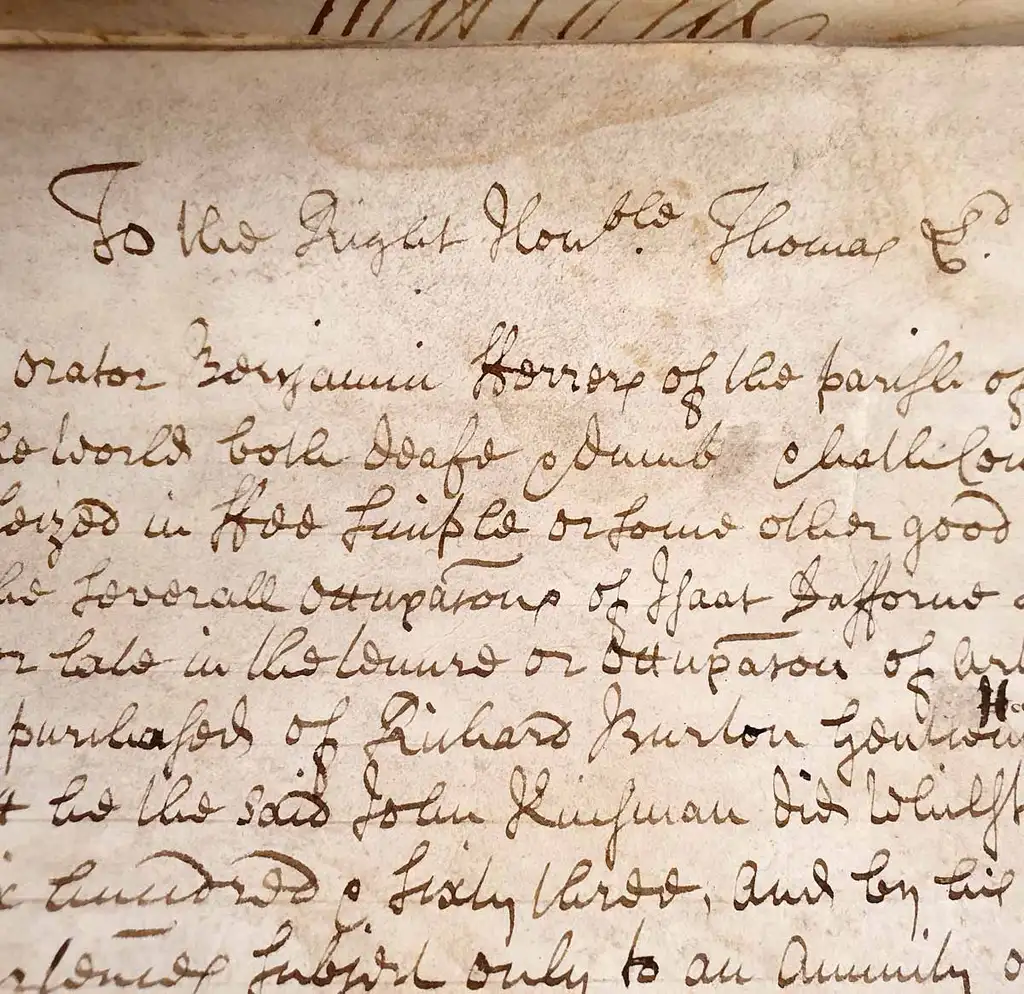 To the Right Honble. Thomas Ld.
orator Benjamin Fferrers of the parish of
he World both deafe & dumb & hath Con
seized in ffee simple or some other good
he severall Occupacons of Isaac Dafforne
or late in the tenure or Occupacon of
purchased of Richard Burton Gentlem
t he the said John Kinsman did Whilst
hundred & sixty three, And by his
subject only to an Annuity o